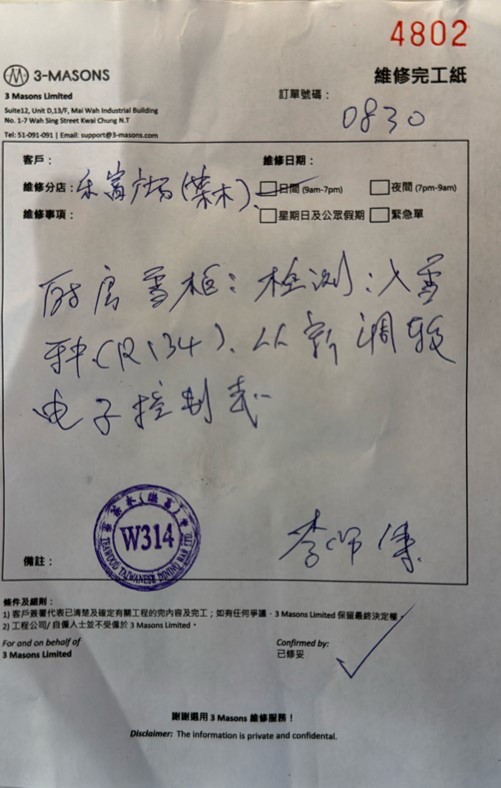 4802
3-MASONS
維修完工紙
3 Masons Limited
訂單號碼：
0830
Suite12, Unit D,13/F, Mai Wah Industrial Building
No. 1-7 Wah Sing Street Kwai Chung N.T
Tel: 51-091-091 | Email: support@3-masons.com
客戶：
維修日期：
維修分店：
日間 (9am-7pm)
夜間 (7pm-9am)
維修事項：
星期日及公眾假期
緊急單
厨房雪柜：检测：入雪
种(R134)、从新调较
电子控制表
W314
TEAWOOD TAIWANESE DINING BAR LTD.
李师傅
備註：
條件及細則：
1) 客戶簽署代表已清楚及確定有關工程的完內容及完工；如有任何爭議，3 Masons Limited 保留最終決定權。
2) 工程公司/ 自僱人士並不受僱於 3 Masons Limited。
For and on behalf of
3 Masons Limited
Confirmed by:
已修妥
謝謝選用 3 Masons 維修服務！
Disclaimer: The information is private and confidential.